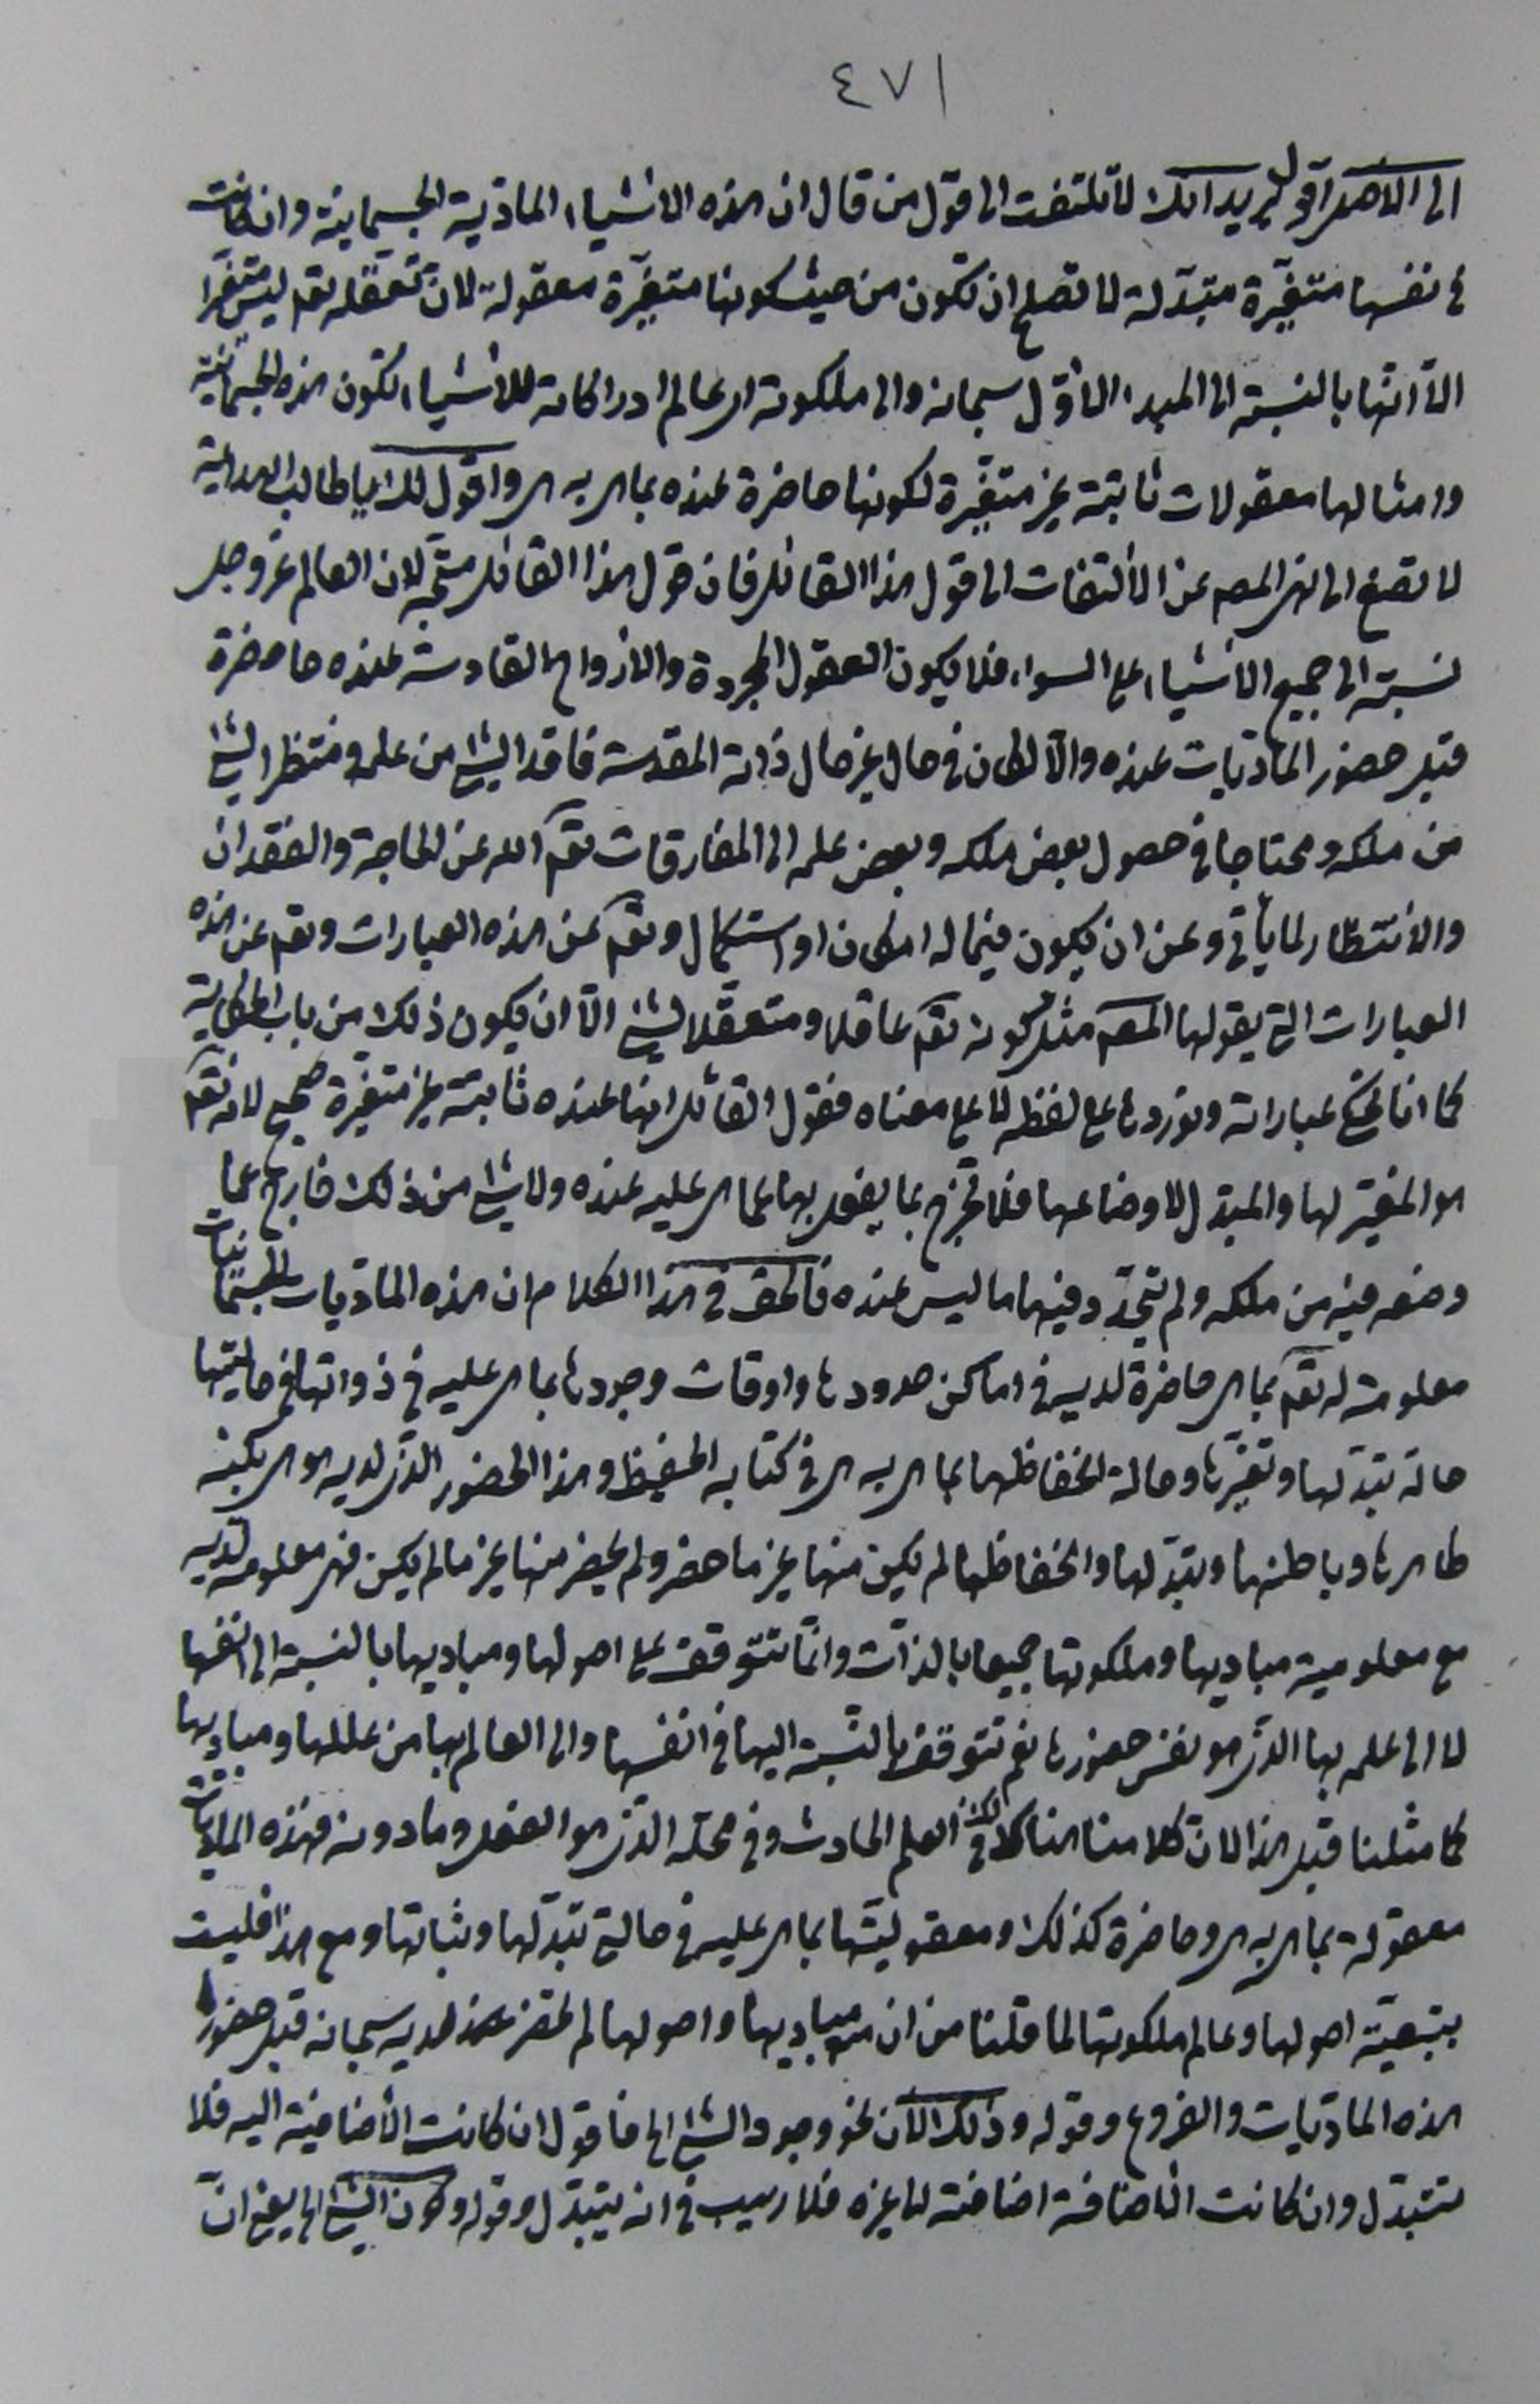 ٤٧١
الى الاخر اقول يريد انك لا تلتفت الى قول من قال ان هذه الاشياء المادّية الجسمانية وان كانت
فى نفسها متغيّرة متبدّلة لا تصلح ان تكون من حيث كونها متغيّرة معقولة لانّ تعقّله تعم ليس متغيّرا
الّا انّها بالنسبة الى المبدء الاوّل سبحانه والى ملكوته اى عالم ادراكاته للاشياء تكون هذه الجسمانيّة
وامثالها معقولات ثابتة غير متغيّرة لكونها حاضرة عنده بما هى به هى واقول لك يا طالب الهداية
لا تصغ الى نهى المصم عن الالتفات الى قول هذا القائل فان قول هذا القائل متّجه لان العالم عز وجل
نسبته الى جميع الاشياء على السواء فلا يكون العقول المجردة والارواح القادسة عنده حاضرة
قبل حضور المادّيات عنده والّا لكان فى حال غير حال ذاته المقدسة فاقدا لشئ من علمه ومنتظرا لشئ
من ملكه ومحتاجا فى حصول بعض ملكه وبعض علمه الى المفارقات تعم الله عن الحاجة والفقدان
والانتظار لما يأتى وعن ان يكون فيما له امكان او استكمال وتعم عن هذه العبارات وتعم عن هذه
العبارات التى يقولها المصم مثل كونه تعم عاقلا ومتعقّلا لشئ الّا ان يكون ذلك من باب الحكاية
كما انا نحكى عباراته ونورد ها على لفظه لا على معناه فقول القائل انها عنده ثابتة غير متغيّرة صحيح لانه تعم
هو المغيّر لها والمبدّل لاوضاعها فلا تخرج بما يفعل بها عما هى عليه عنده ولا شئ من ذلك خارج عما
وضعه فيه من ملكه ولم تتجدّد فيها ما ليس عنده فالحق فى هذا الكلام ان هذه المادّيات الجسمانيات
معلومة له تعم بما هى حاضرة لديه فى اماكن حدودها واوقات وجودها بما هى عليه فى ذواتها فى حالتيها
حالة تبدّلها وتغيّرها وحالة انحفاظها بما هى به هى فى كتابه الحفيظ وهذا الحضور الذى لديه هو هى بكنه
ظاهرها وباطنها وتبدّلها وانحفاظها لم يكن منها غير ما حضر ولم يحضر منها غير ما لم يكن فهى معلومة لديه
مع معلومية مباديها وملكوتها جميعا بالذات وانّما تتوقف على اصولها ومباديها بالنسبة الى انفسها
لا الى علمه بها الذى هو نفس حضورها نعم تتوقف بالنسبة اليها فى انفسها والى العالم بها من عللها ومباديها
كما مثلنا قبل هذا لانّ كلامنا هناك فى العلم الحادث وفى محلّه الذى هو العقل وما دونه فهذه المادّيات
معقولة بما هى به هى وحاضرة كذلك ومعقوليّتها بما هى عليه فى حالتى تبدّلها وثباتها ومع هذا فليست
بتبعيّة اصولها وعالم ملكوتها لما قلنا من ان مباديها واصولها لم تحضر لديه سبحانه قبل حضور
هذه المادّيات والفروع وقوله وذلك لانّ نحو وجود الشئ الى فاقول ان كانت الاضافية اليه فلا
تتبدّل وان كانت الاضافة اضافته لا غيره فلا ريب فى انه يتبدّل وقوله وكون الشئ الى يعنى انّ